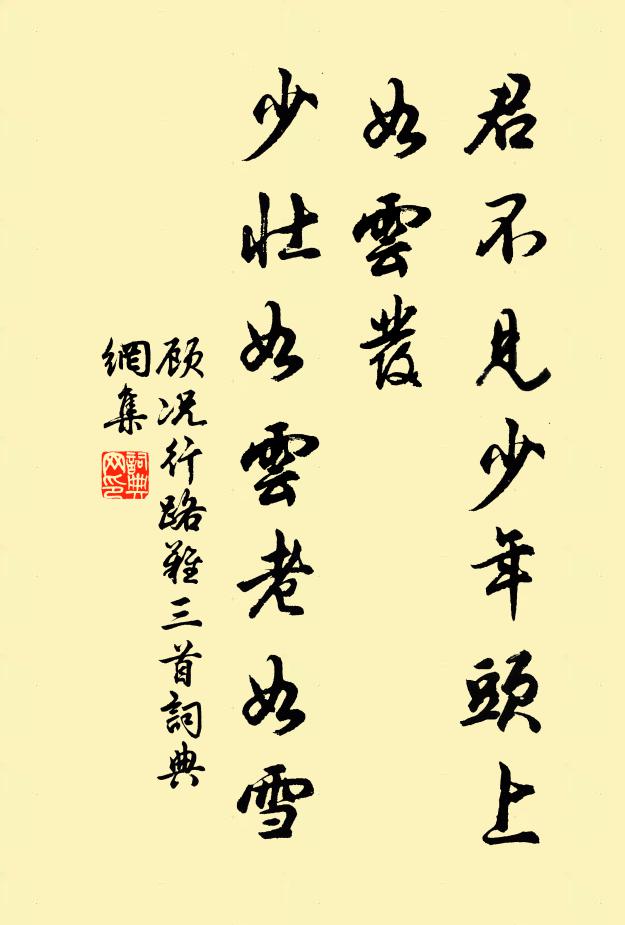 君不見少年頭上
如雲發
少壯如雲老如雪
顾况行路難三首詞典
網集
詞典
网印